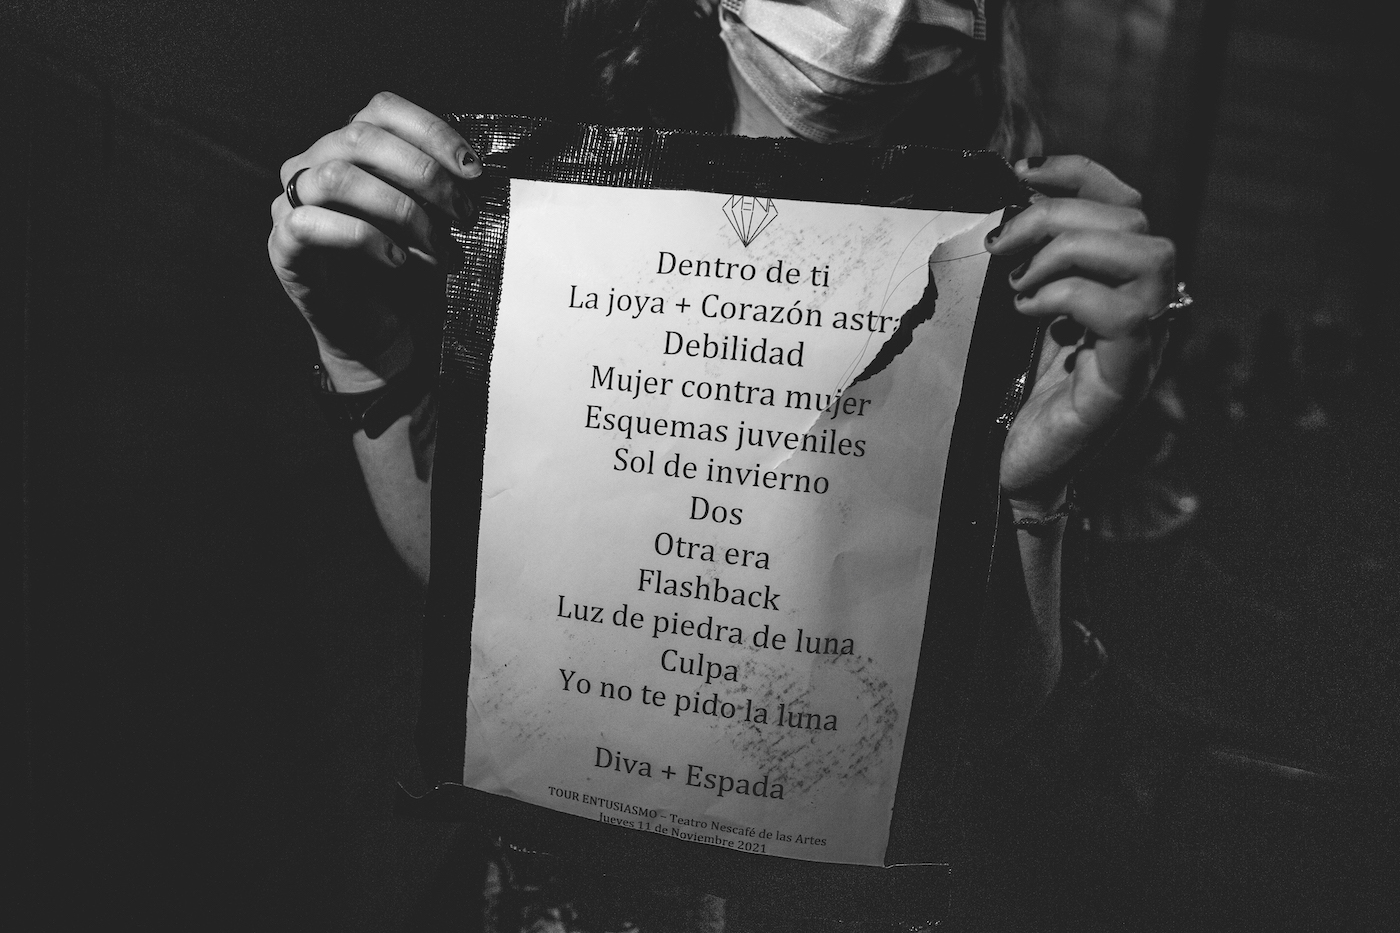 MENA
Dentro de ti
La joya + Corazón astra
Debilidad
Mujer contra mujer
Esquemas juveniles
Sol de invierno
Dos
Otra era
Flashback
Luz de piedra de luna
Culpa
Yo no te pido la luna
Diva + Espada
TOUR ENTUSIASMO – Teatro Nescafé de las Artes
Jueves 11 de Noviembre 2021